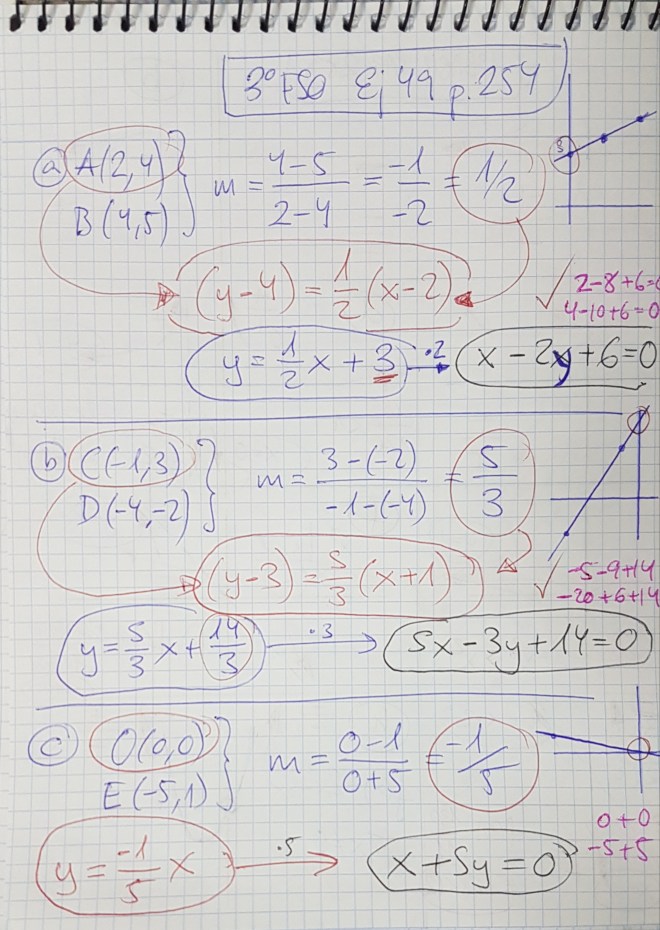 3º ESO Ej 49 p.254
a) A(2,4)
B(4,5)
m = 4-5 / 2-4 = -1 / -2 = 1/2
3
(y-4) = 1/2 (x-2)
√ 2-8+6=0
4-10+6=0
y = 1/2 x + 3 ·2 → x - 2y + 6 = 0
b) C(-1,3)
D(-4,-2)
m = 3-(-2) / -1-(-4) = 5/3
(y-3) = 5/3 (x+1)
√ -5-9+14
-20+6+14
y = 5/3 x + 14/3 ·3 → 5x - 3y + 14 = 0
c) O(0,0)
E(-5,1)
m = 0-1 / 0+5 = -1/5
0+0
-5+5
y = -1/5 x ·5 → x + 5y = 0